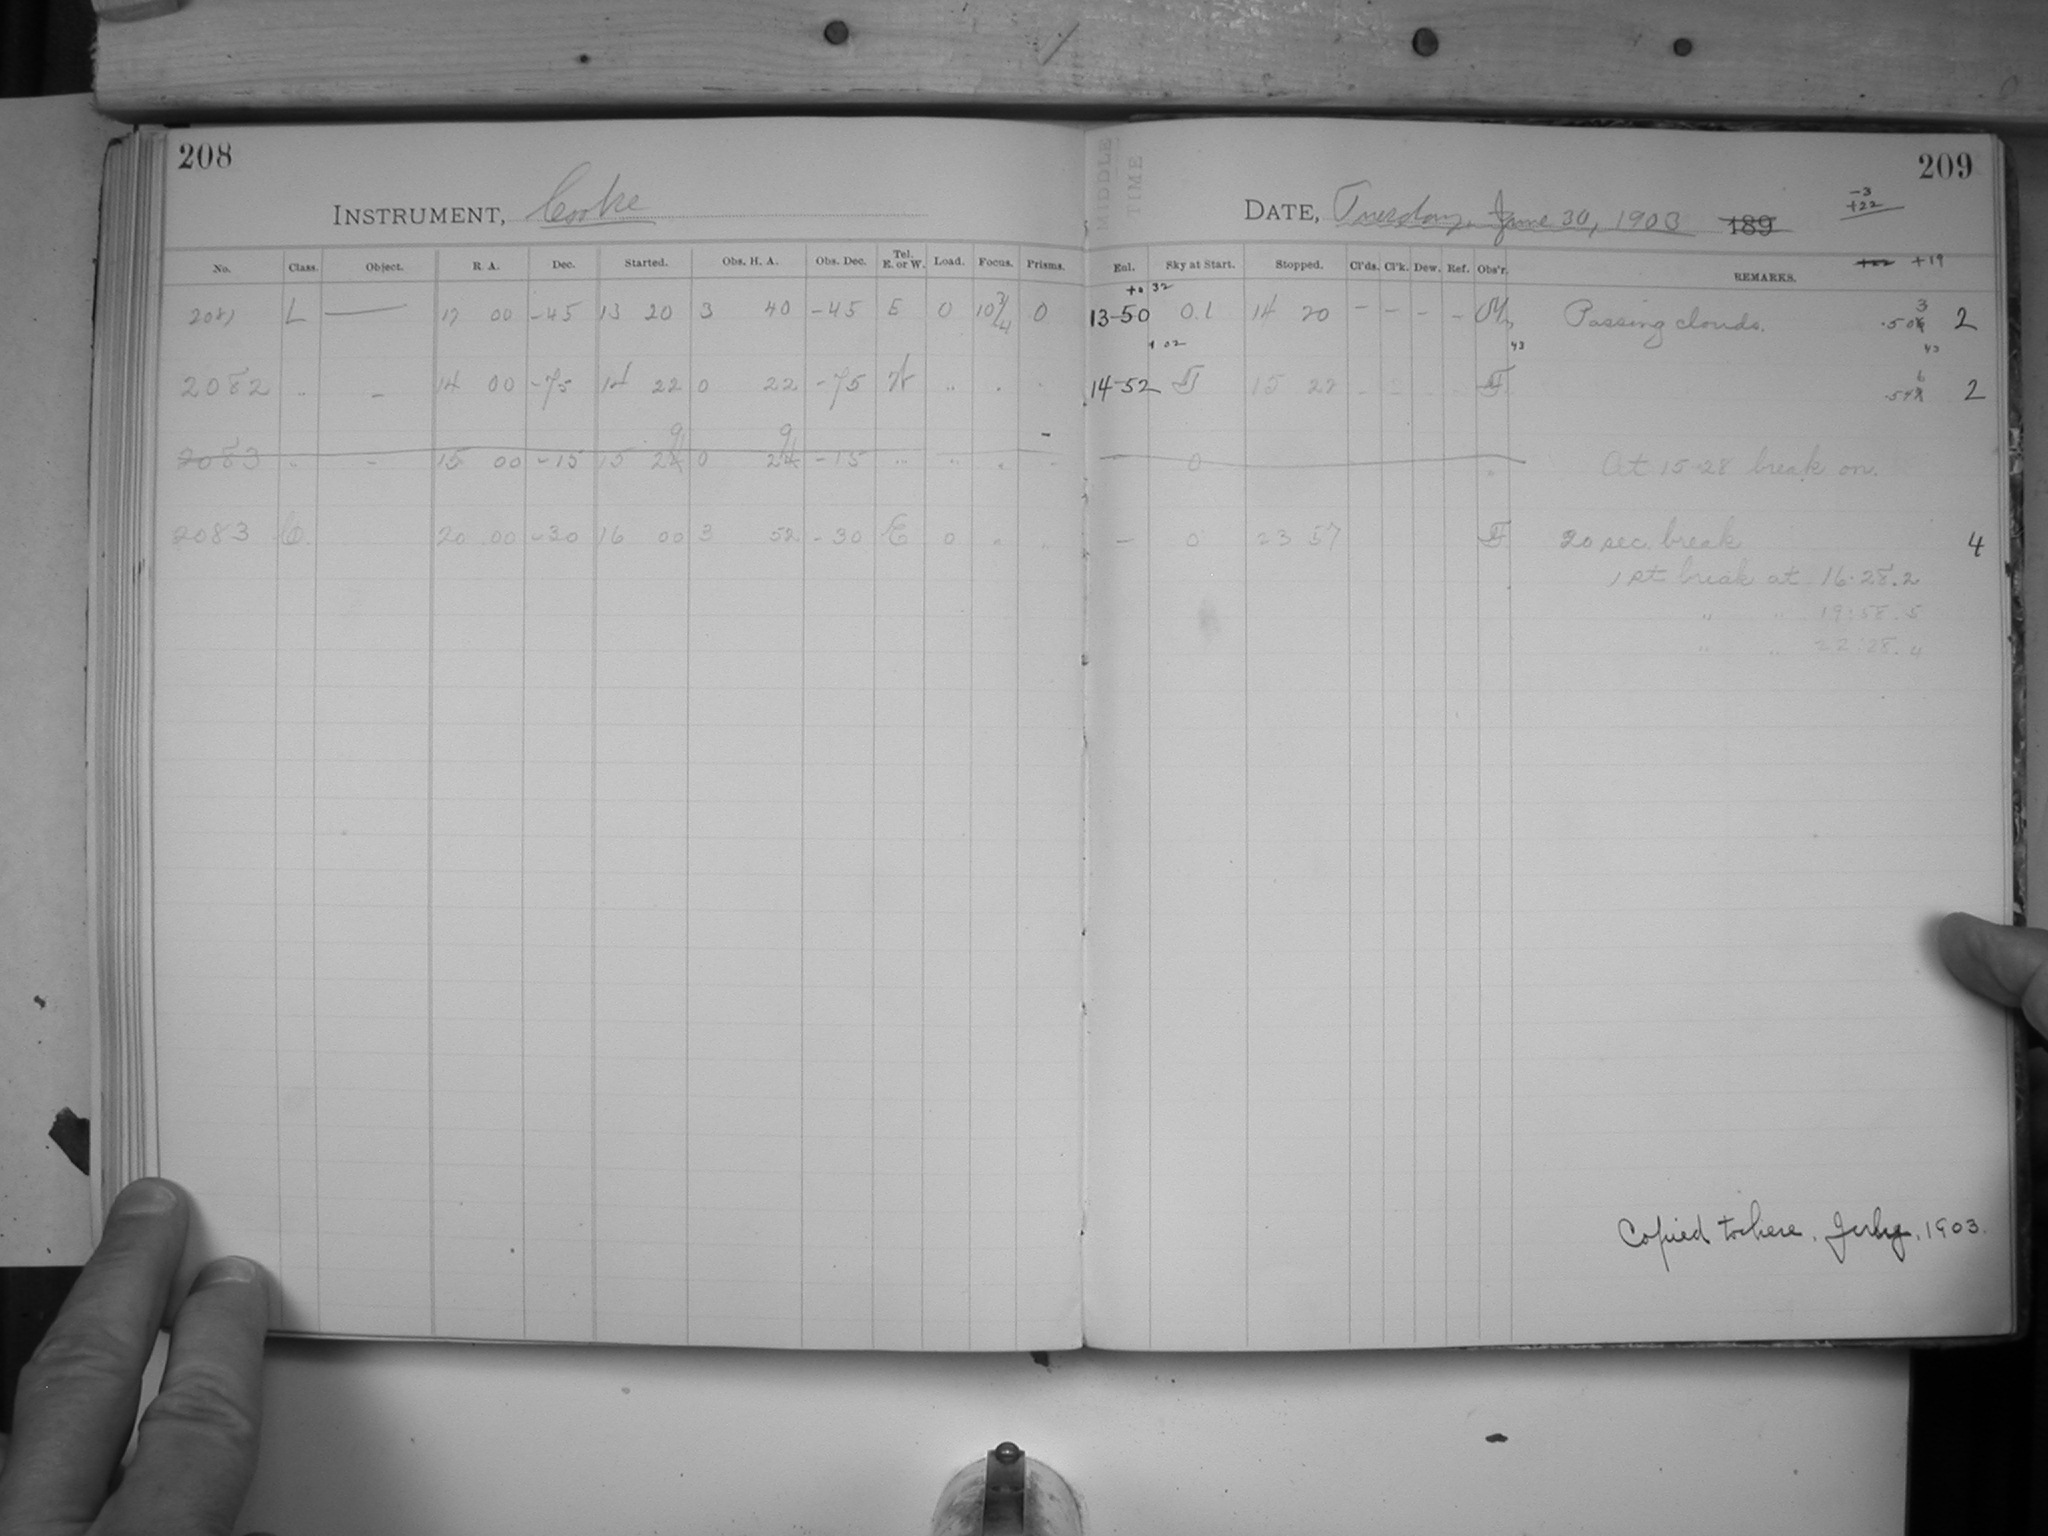 208
INSTRUMENT, Cooke
No. Class. Object. R. A. Dec. Started. Obs. H. A. Obs. Dec. Tel. E. or W. Load. Focus. Prisms.
2081 L — 17 00 -45 13 20 3 40 -45 E 0 10 3/4 0
2082 " – 14 00 -75 14 22 0 22 -75 W " " "
2083 " – 15 00 -15 15 24 0 24 -15 " " " "
2083 C. 20 00 -30 16 00 3 52 -30 E 0 " "
MIDDLE
TIME
209
DATE, Tuesday, June 30, 1903 189
-3
+22
+22 +19
Exl. Sky at Start. Stopped. Cl'ds. Cl'k. Dew. Ref. Obs'r. REMARKS.
13-50 0.1 14 20 – – – – Passing clouds. 2
14-52 15 22 2
0 At 15-28 break on.
– 0 23 57 20 sec. break 4
1st break at 16.28.2
" " 19:58.5
" " 22:28.4
Copied to here. July, 1903.